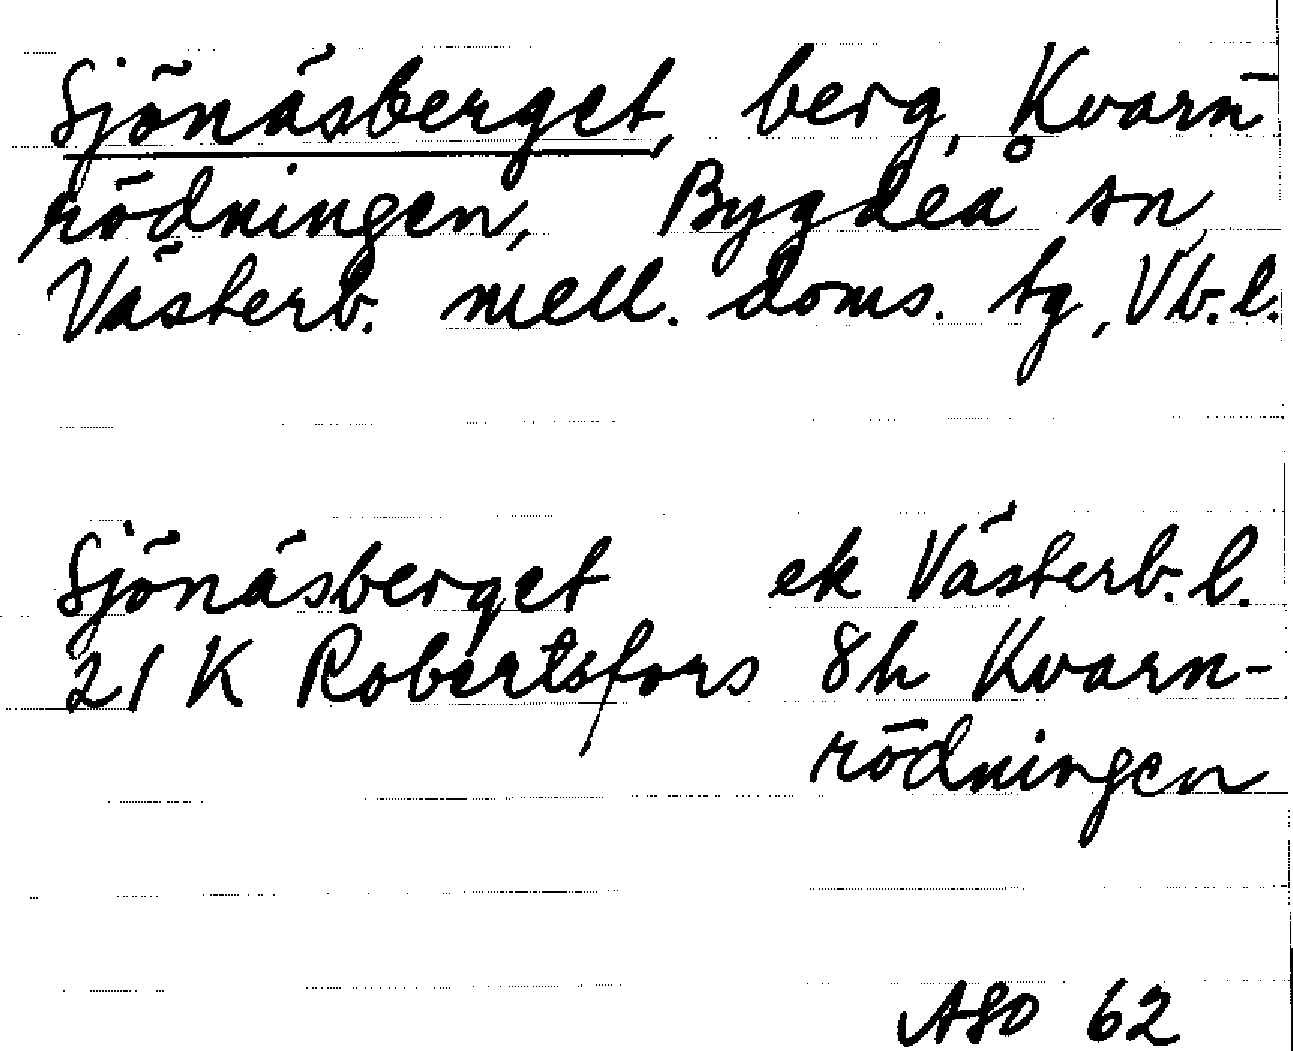 Sjönäsberget, berg, Kvarn-
rödningen, Bygdeå sn,
Västerb. mell. doms. tg, Vb. l.
Sjönäsberget ek Västerb. l.
21 K Robertsfors 8h Kvarn-
rödningen
ASO 62